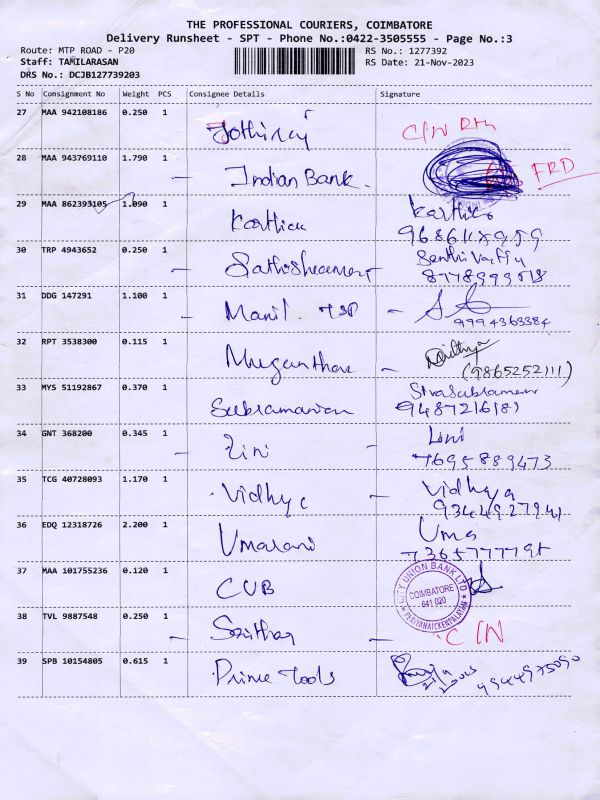 THE PROFESSIONAL COURIERS, COIMBATORE
Delivery Runsheet - SPT - Phone No.:0422-3505555 - Page No.:3
Route: MTP ROAD - P20 RS No.: 1277392
Staff: TAMILARASAN RS Date: 21-Nov-2023
DRS No.: DCJB127739203
S No Consignment No Weight PCS Consignee Details Signature
27 MAA 942108186 0.250 1 Jothiraj C/N Rtn
28 MAA 943769110 1.790 1 - Indian Bank. FRD
29 MAA 862393105 1.090 1 Karthick Karthick
30 TRP 4943652 0.250 1 -
8778999518
31 DDG 147291 1.100 1 - Manil. TSP -
9994363384
32 RPT 3538300 0.115 1 -
(9865252111)
33 MYS 51192867 0.370 1 Subramanian
9487216181
34 GNT 368200 0.345 1 - Lini - Lini
7695889473
35 TCG 40728093 1.170 1 Vidhya - Vidhya
9344927941
36 EDQ 12318726 2.200 1 Umarani Uma
7365777795
37 MAA 101755236 0.120 1 CUB
CITY UNION BANK LTD
COIMBATORE
641 020
PERIYANAICKENPALAYAM
38 TVL 9887548 0.250 1 - - C/N
39 SPB 10154805 0.615 1 Prime Tools
9944975090